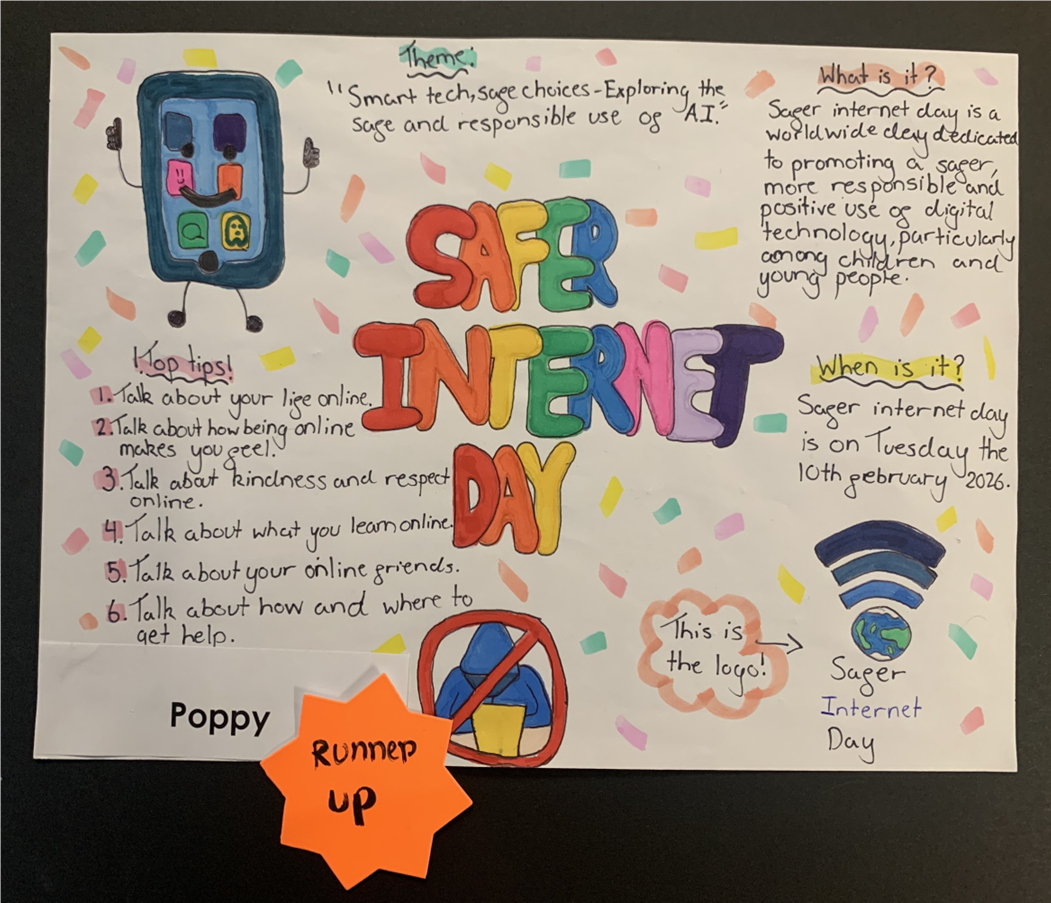 Theme:
"Smart tech, safe choices - Exploring the
safe and responsible use of AI."
What is it?
Safer internet day is a
worldwide day dedicated
to promoting a safer,
more responsible and
positive use of digital
technology, particularly
among children and
young people.
SAFER
INTERNET
DAY
!Top tips!
1. Talk about your life online.
2. Talk about how being online
makes you feel.
3. Talk about kindness and respect
online.
4. Talk about what you learn online.
5. Talk about your online friends.
6. Talk about how and where to
get help.
When is it?
Safer internet day
is on Tuesday the
10th february 2026.
This is
the logo!
Safer
Internet
Day
Poppy
Runner
up